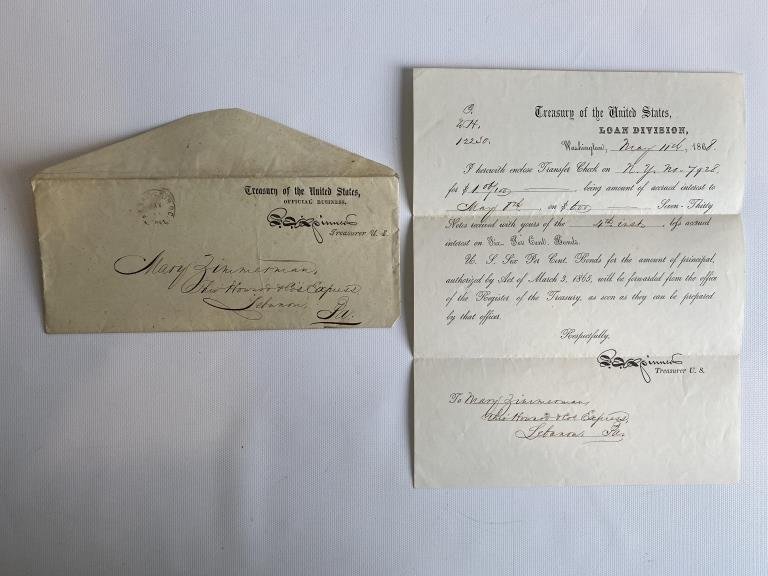 Treasury of the United States,
OFFICIAL BUSINESS.
F. E. Spinner
Treasurer U. S.
Mary Zimmerman,
Thro Howard & Co's Express,
Lebanon,
Pa.
C.
W.H.
12230.
Treasury of the United States,
LOAN DIVISION,
Washington, May 11th, 1868.
I herewith enclose Transfer Check on N. Y. No. 7928
for $1 01/100, being amount of accrued interest to
May on $600 Seven-Thirty
Notes received with yours of the 4th inst, less accrued
interest on Six Per Cent. Bonds.
U. S. Six Per Cent. Bonds for the amount of principal,
authorized by Act of March 3, 1865, will be forwarded from the office
of the Register of the Treasury, as soon as they can be prepared
by that officer.
Respectfully,
F. E. Spinner
Treasurer U. S.
To Mary Zimmerman,
Thro Howard & Co's Express,
Lebanon, Pa.